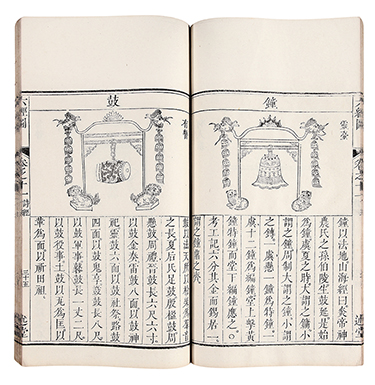 六經圖
鐘
靈臺
鐘以法地山海經曰炎帝
農氏之孫伯陵生鼓延是始
為鐘虞夏之時大謂之鐘小
謂之鐘周制大謂之鐘小謂
之鎛一虡懸一鐘為特鐘一
鐘特鐘而堂下編鐘應之
考工記六分其金而錫居一
謂之鐘鼎之齊
鼓
之長夏后氏足鼓殷楹鼓周
懸鼓周禮晉鼓長六尺六寸
以鼓金奏雷鼓八面以鼓神
祀靈鼓六面以鼓社祭路鼓
四面以鼓鬼享鼖鼓長八尺
以鼓軍事鼛鼓長一丈二尺
以鼓役事土鼓以瓦為匡以
革為面以祈田祖
六經圖
三十五